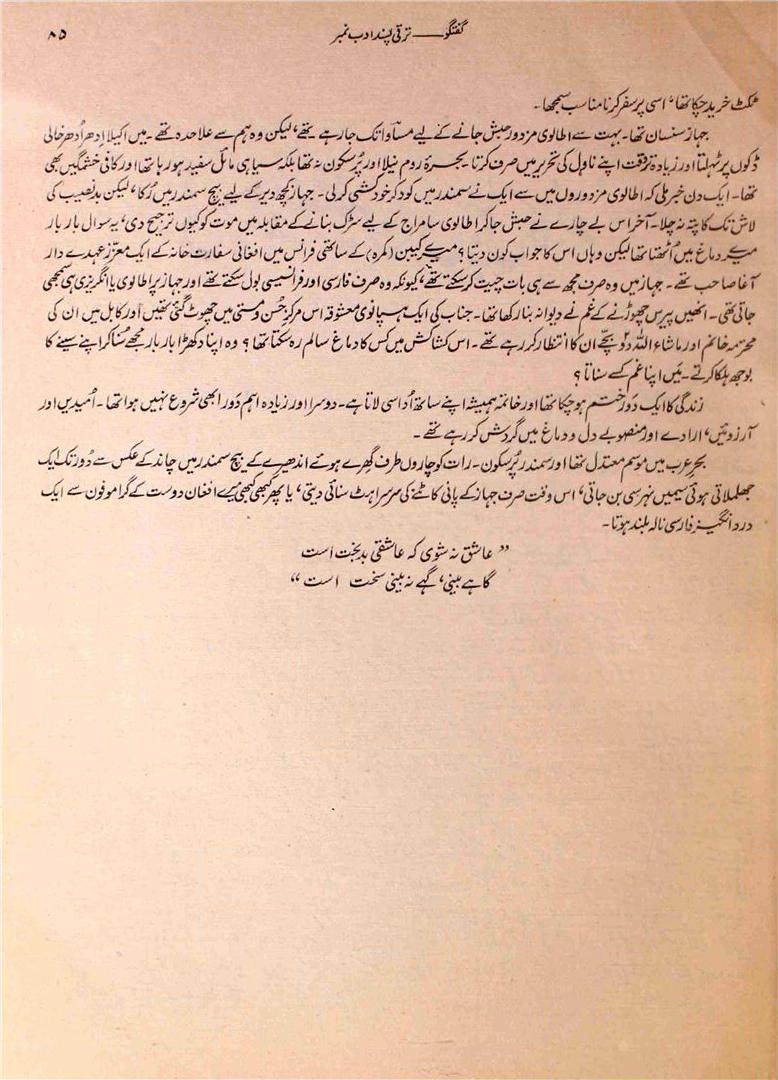 گفتگو ــــ ترقی پسند ادب نمبر
۸۵
ٹکٹ خرید چکا تھا، اسی پر سفر کرنا مناسب سمجھا۔
جہاز سنسان تھا۔ بہت سے اطالوی مزدور حبش جانے کے لیے مساوا تک جا رہے تھے، لیکن وہ ہم سے علاحدہ تھے۔ میں اکیلا اِدھر اُدھر خالی
ڈکوں پر ٹہلتا اور زیادہ تر وقت اپنے ناول کی تحریر میں صرف کرتا۔ بحرۂ روم نیلا اور پُرسکون نہ تھا بلکہ سیاہی مائل سفید ہو رہا تھا اور کافی خشمگیں بھی
تھا۔ ایک دن خبر ملی کہ اطالوی مزدوروں میں سے ایک نے سمندر میں کود کر خودکشی کر لی۔ جہاز کچھ دیر کے لیے بیچ سمندر میں رُکا، لیکن بدنصیب کی
لاش تک کا پتہ نہ چلا۔ آخر اس بے چارے نے حبش جا کر اطالوی سامراج کے لیے سڑک بنانے کے مقابلہ میں موت کو کیوں ترجیح دی، یہ سوال بار بار
میرے دماغ میں اُٹھتا تھا لیکن وہاں اس کا جواب کون دیتا؟ میرے کیبن (کمرہ) کے ساتھی فرانس میں افغانی سفارت خانہ کے ایک معزز عہدے دار
آغا صاحب تھے۔ جہاز میں وہ صرف مجھ سے ہی بات چیت کر سکتے تھے، کیونکہ وہ صرف فارسی اور فرانسیسی بول سکتے تھے اور جہاز پر اطالوی یا انگریزی ہی سمجھی
جاتی تھی۔ انھیں پیرس چھوڑنے کے غم نے دیوانہ بنا رکھا تھا۔ جناب کی ایک ہسپانوی معشوقہ اس مرکزِ حُسن و مستی میں چھوٹ گئی تھیں اور کابل میں ان کی
محترمہ خانم اور ماشاء اللہ دو بچّے ان کا انتظار کر رہے تھے۔ اس کشاکش میں کس کا دماغ سالم رہ سکتا تھا؟ وہ اپنا دکھڑا بار بار مجھے سُنا کر اپنے سینے کا
بوجھ ہلکا کرتے۔ میں اپنا غم کسے سناتا؟
زندگی کا ایک دَور ختم ہو چکا تھا اور خاتمہ ہمیشہ اپنے ساتھ اُداسی لاتا ہے۔ دوسرا اور زیادہ اہم دَور ابھی شروع نہیں ہوا تھا۔ اُمیدیں اور
آرزوئیں، ارادے اور منصوبے دل و دماغ میں گردش کر رہے تھے۔
بحرِ عرب میں موسم معتدل تھا اور سمندر پُرسکون۔ رات کو چاروں طرف گھرے ہوئے اندھیرے کے بیچ سمندر میں چاند کے عکس سے دُور تک ایک
جھلملاتی ہوئی سیمیں نہر سی بن جاتی، اس وقت صرف جہاز کے پانی کاٹنے کی سرسراہٹ سنائی دیتی، یا پھر کبھی کبھی میرے افغان دوست کے گراموفون سے ایک
درد انگیز فارسی نالہ بلند ہوتا۔
” عاشق نہ شوی کہ عاشقی بدبخت است
گاہے بینی، گہے نہ بینی سخت است “